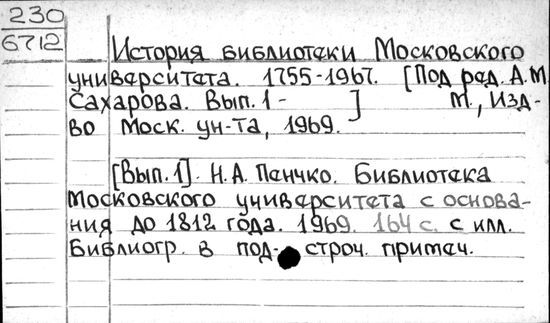 230
6712
История библиотеки Московского
университета. 1755-1967. [Под ред. А.М.
Сахарова. Вып. 1 - ] М., Изд-
во Моск. ун-та, 1969.
[Вып. 1]. Н.А. Пенчко. Библиотека
Московского университета с основа-
ния до 1812 года. 1969. 164 с. с илл.
Библиогр. в под- строч. примеч.